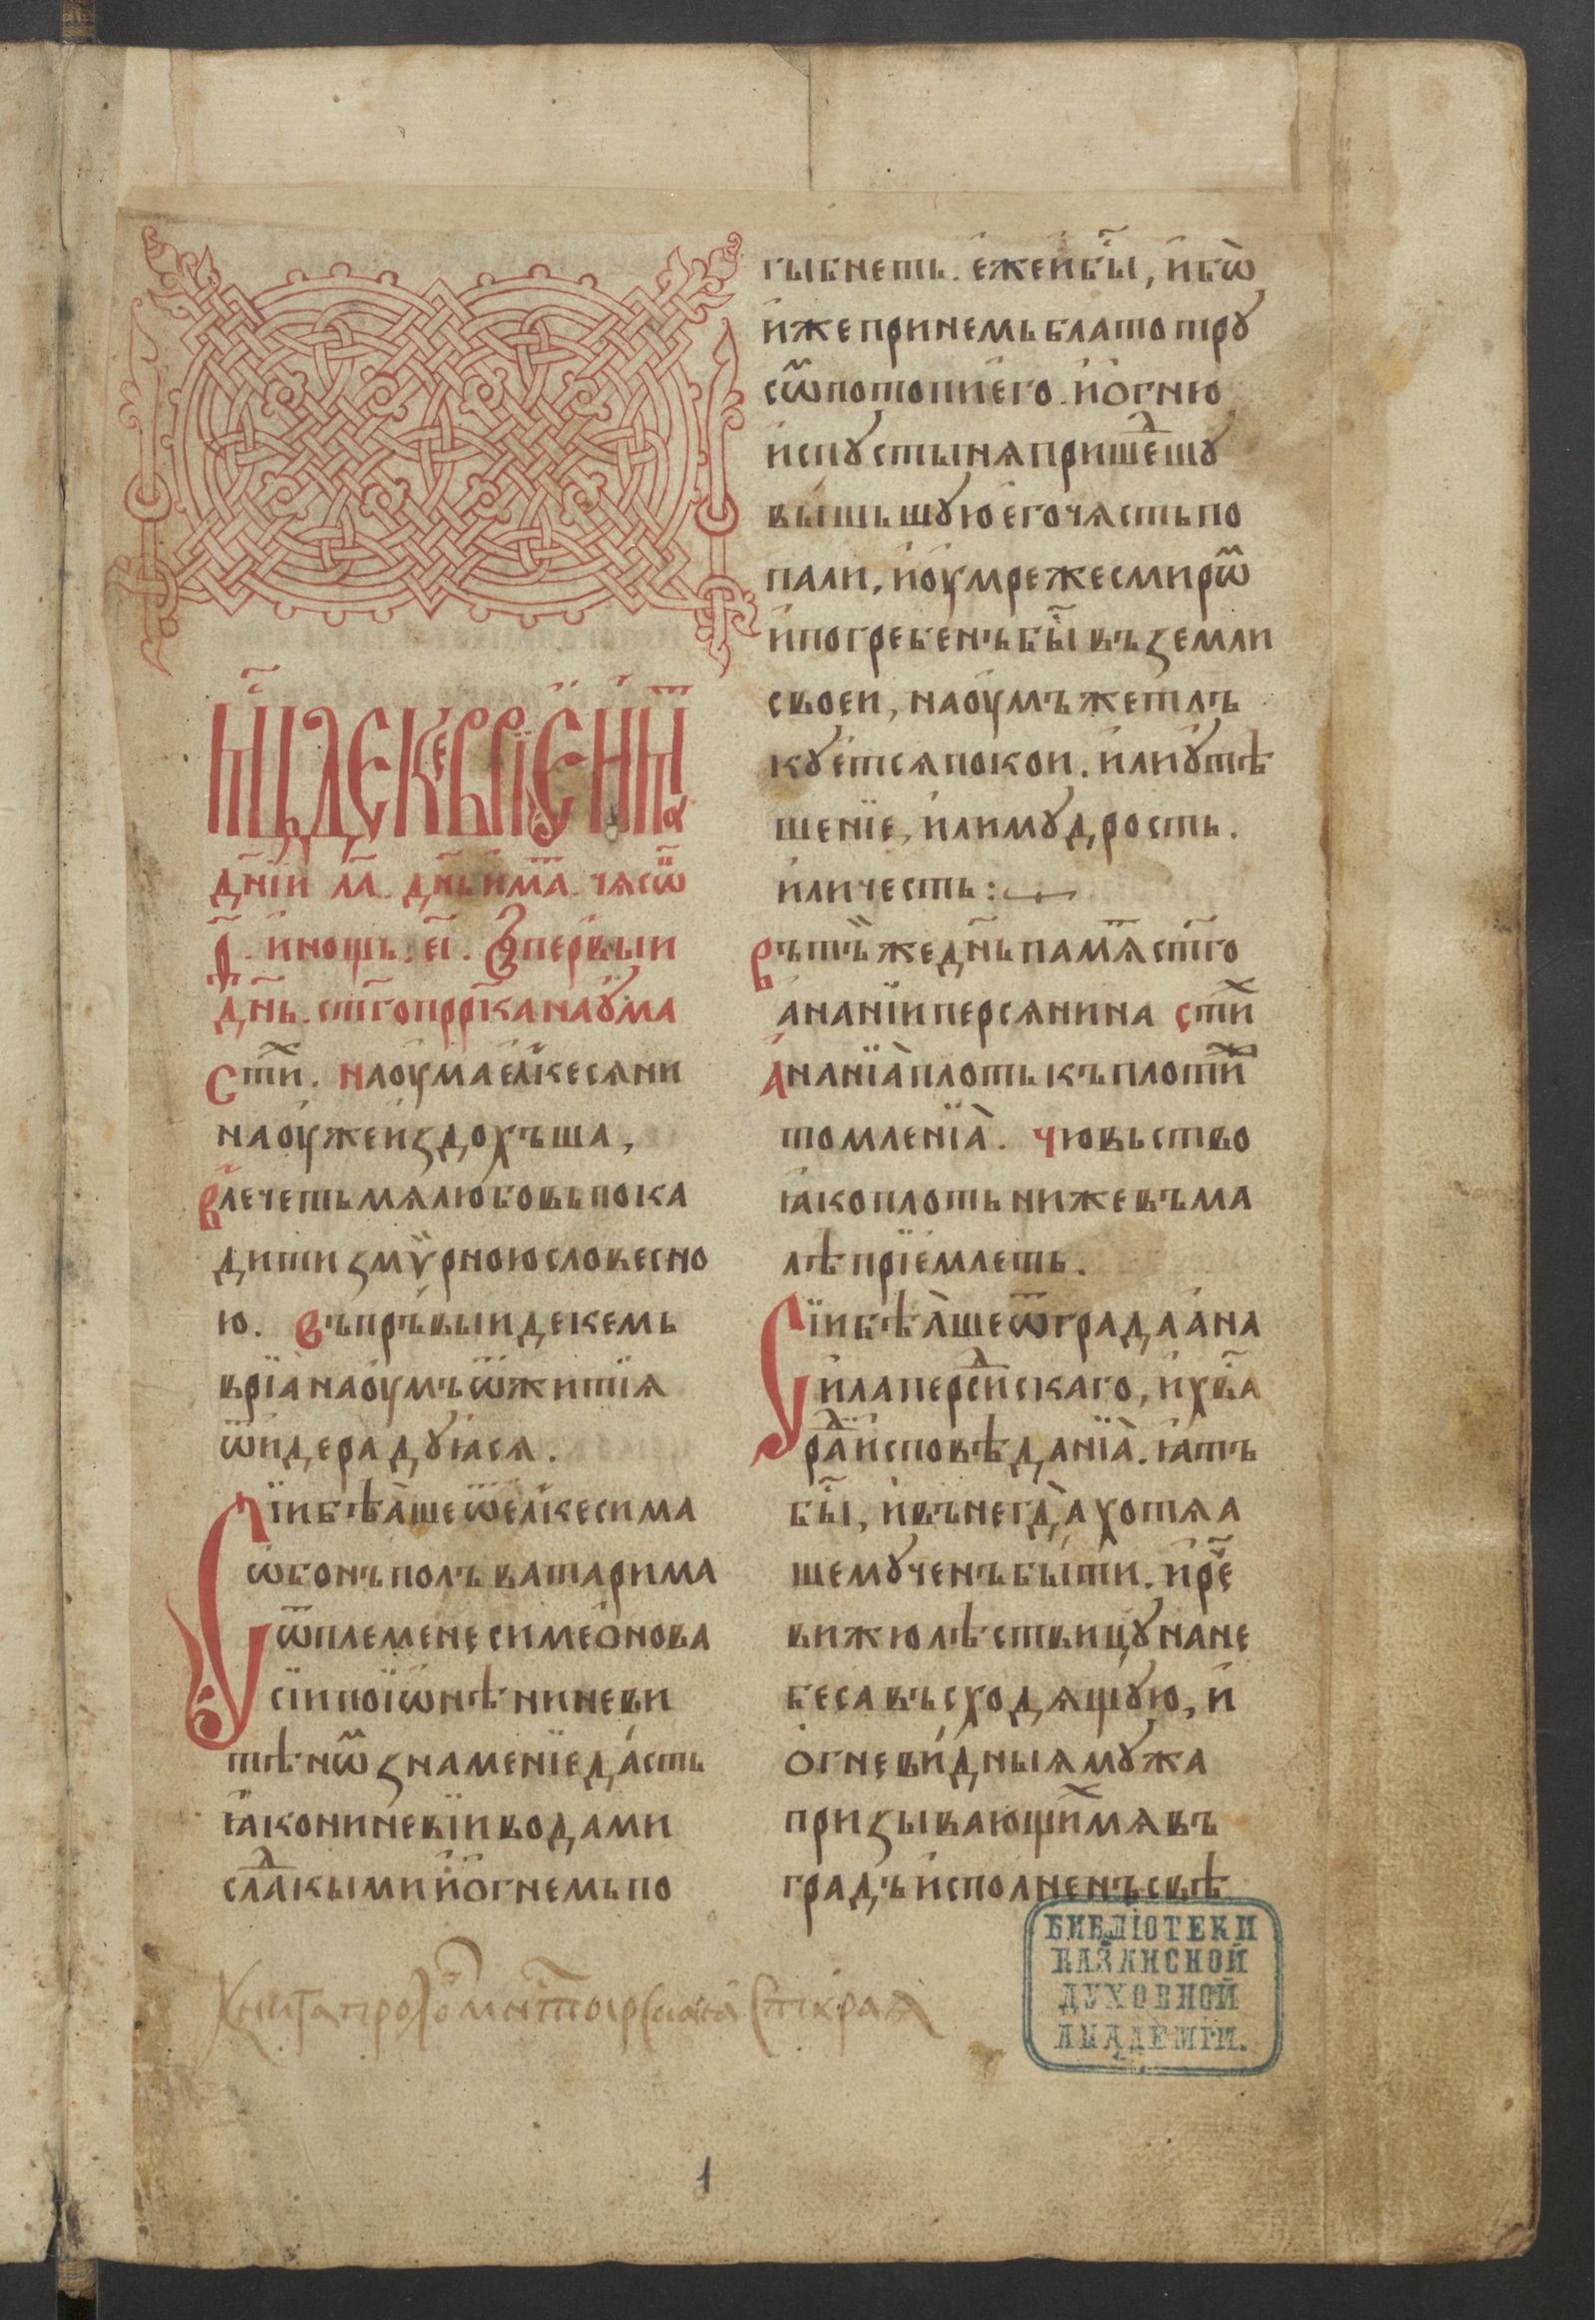 мⷭ҇ць декеврїе имат
дн҃їи л҃а. дн҃ь имат. чясѡ
ѳ҃. и нощь. е҃і. Въ первыи
дн҃ь. ст҃го прⷪ҇рка наꙋма
Стиⷯ. Наоума елкесяни
на оуже издохъша,
влечеть мя любовь пока
дити змѵрною словесно
ю. Въ пръвыи декемь
врїа наоумъ ѿ житїя
ѿиде радꙋꙗся.
Сїи бѣаше ѿ елкесима
ѡбонъ полъ ватарима
ѿ племене симеонова
сїи по їѡнѣ ниневи
тѣнѡⷨ знаменїе дасть
ꙗко ниневїи водами
слаⷣкыми и огнемь по
гыбнеть. еже и бы҃, ибѡ
иже при немь блато трꙋ
сѡⷨ потопи его. и огню
ис пꙋстыня пришеⷣшꙋ
вышьшꙋю его чясть по
пали, и оумре же с мирѡⷨ
и погребенъ бы҃ въ земли
своеи, наоумъ же тлъ
кꙋется покои. или ꙋтѣ
шенїе, или мꙋдрость.
или честь:
Въ тъⷤ же дн҃ь памⷮя ст҃го
ананїи персянина стиⷯ
Ананїа плоть къ плотиⷯ
томленїа. Чювьство
ꙗко плоть ниже въ ма
лѣ прїемлеть.
Сїи бѣаше ѿ града ана
ила персиⷣскаго, и хв҃а
раⷣи исповѣданїа. ꙗтъ
бы҃, и вънегда хотяа
ше мꙋченъ быти. и реⷱ҇
вижю лѣствицꙋ на не
беса въсходящꙋю, и
огневидныя мꙋжа
призывающиⷯ мя въ
градъ исполненъ свѣ
БИБЛІОТЕКИ
КАЗАНСКОЙ
ДУХОВНОЙ
АКАДЕМІИ.
1